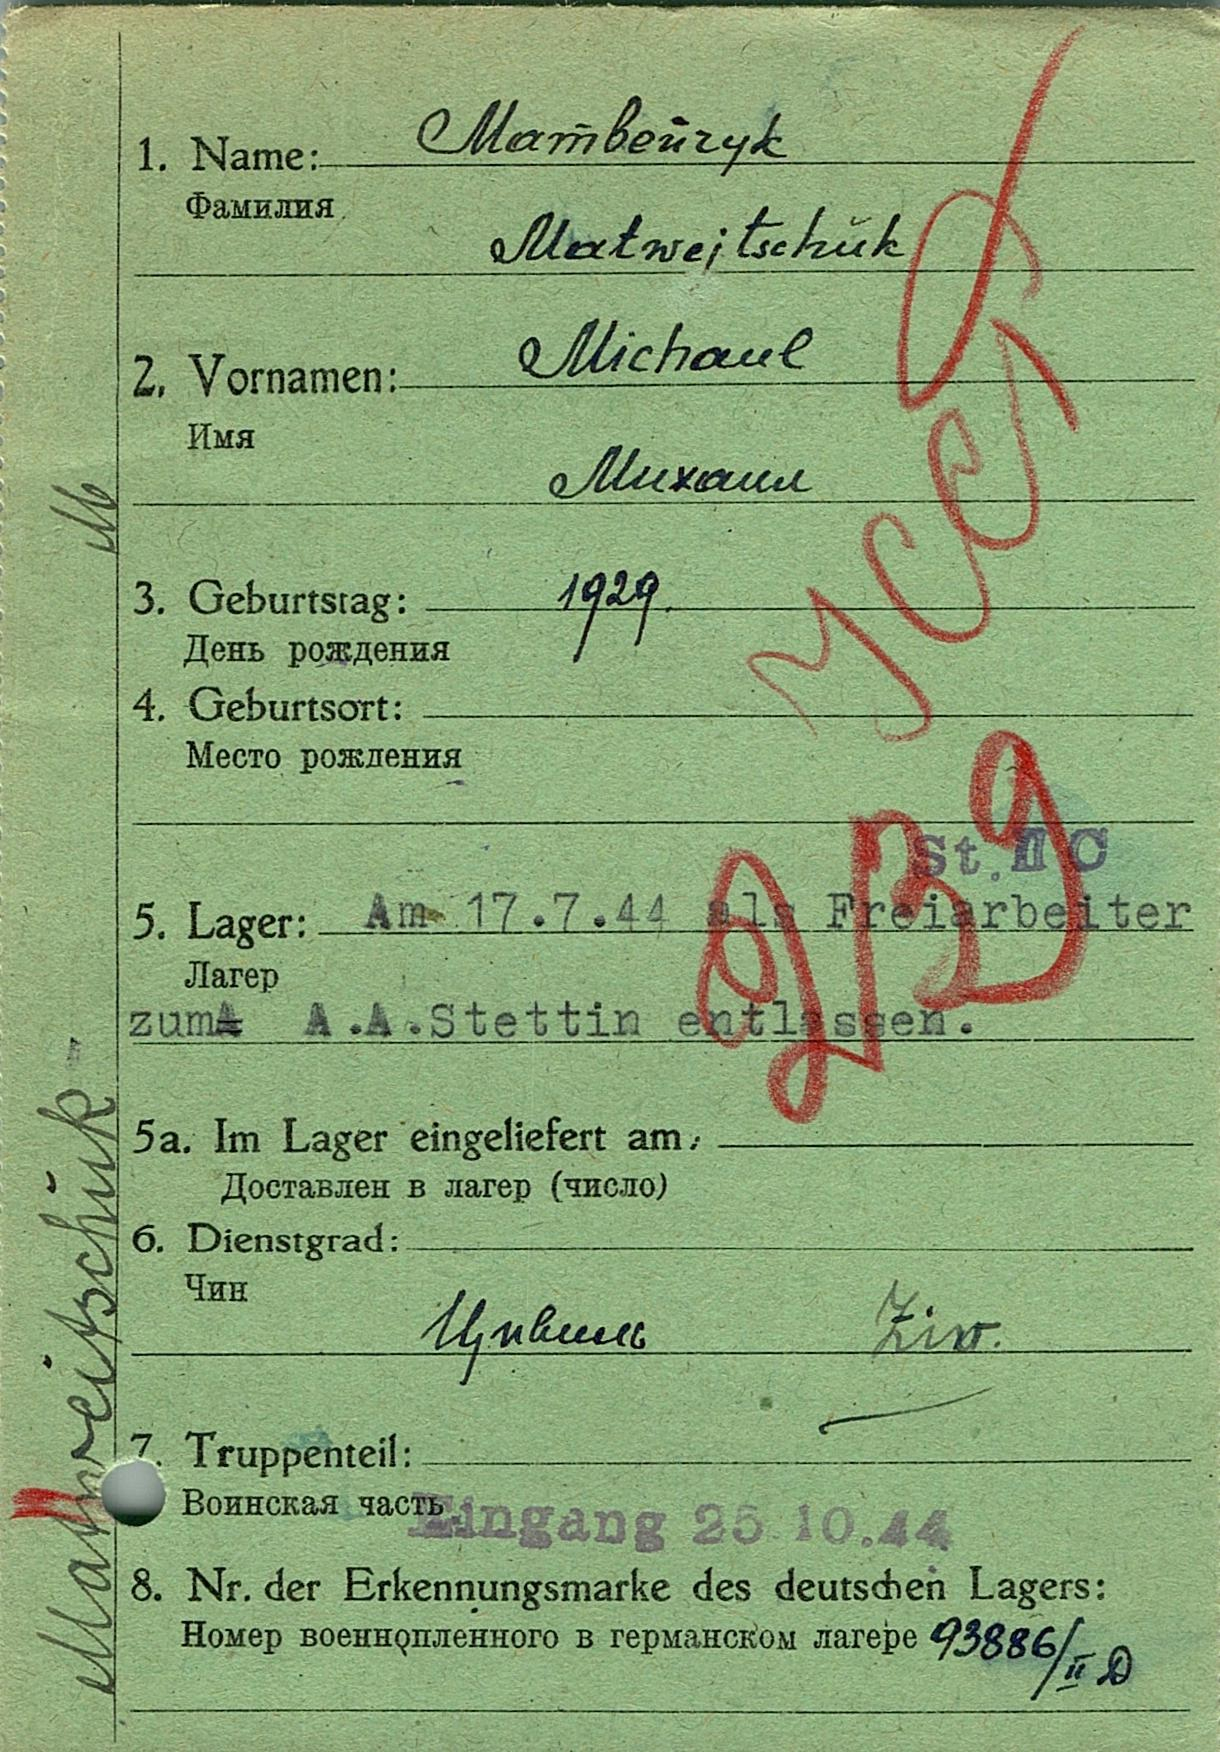 1. Name: Матвейчук
Фамилия
Matwejtschŭk
2. Vornamen: Michael
Имя
Михаил
3. Geburtstag: 1929.
День рождения
4. Geburtsort:
Место рождения
St. II C
5. Lager: Am 17.7.44 als Freiarbeiter
Лагер
zum A.A.Stettin entlassen.
5a. Im Lager eingeliefert am:
Доставлен в лагер (число)
6. Dienstgrad:
Чин
Цивиль Ziv.
7. Truppenteil:
Воинская часть
Eingang 25 10.44
8. Nr. der Erkennungsmarke des deutschen Lagers:
Номер военнопленного в германском лагере 93886/II D
Matweitschŭk M